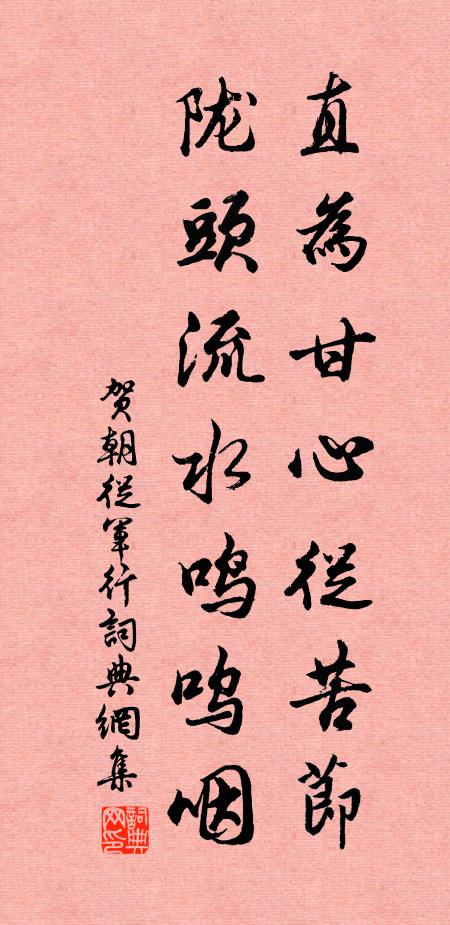 直為甘心從苦節
陇頭流水鸣呜咽
贺朝從軍行詞典網集
詞典
网印